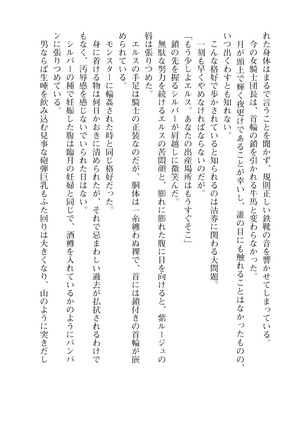 れた身体はまるで言うことを聞かず、規則正しい鉄靴の音を響かせてしまっている。
今の女騎士団長は、首輪の鎖を引かれる牛馬と変わらなかった。
月が頭上で輝く夜更けであることが幸いし、誰の目にも触れることはなかったものの、
いつ出くわすとも知れない。
こんな格好で歩かされていると知られるのは沽券に関わる大問題。
一刻も早くやめなければならないのだが。
「もう少しよエルス。あなたの出産場所はもうすぐそこ」
鎖の先を握るシルバーが肩越しに微笑んだ。
無駄な努力を続けるエルスの苦悶顔と、膨れに膨れた腹に目を向けると、紫ルージュの
唇は張りつめた。
エルスの手足は騎士の正装なのだが、胴体は一糸纏わぬ裸で、首には鎖付きの首輪が嵌
められている。
モンスターに輪姦された時と同じ格好だった。
身に着ける物は何日かおきに清められたが、それで忌まわしい過去が払拭されるわけで
もなく、汚辱感を感じないでいられた日はない。
シルバーの種で妊娠した腹は臨月の妊婦と同じで、酒樽を入れているかのようにパンパ
ンに張りつめている。
男ならば生唾を飲み込む見事な砲弾巨乳もふた回りは大きくなり、山のように突きだし